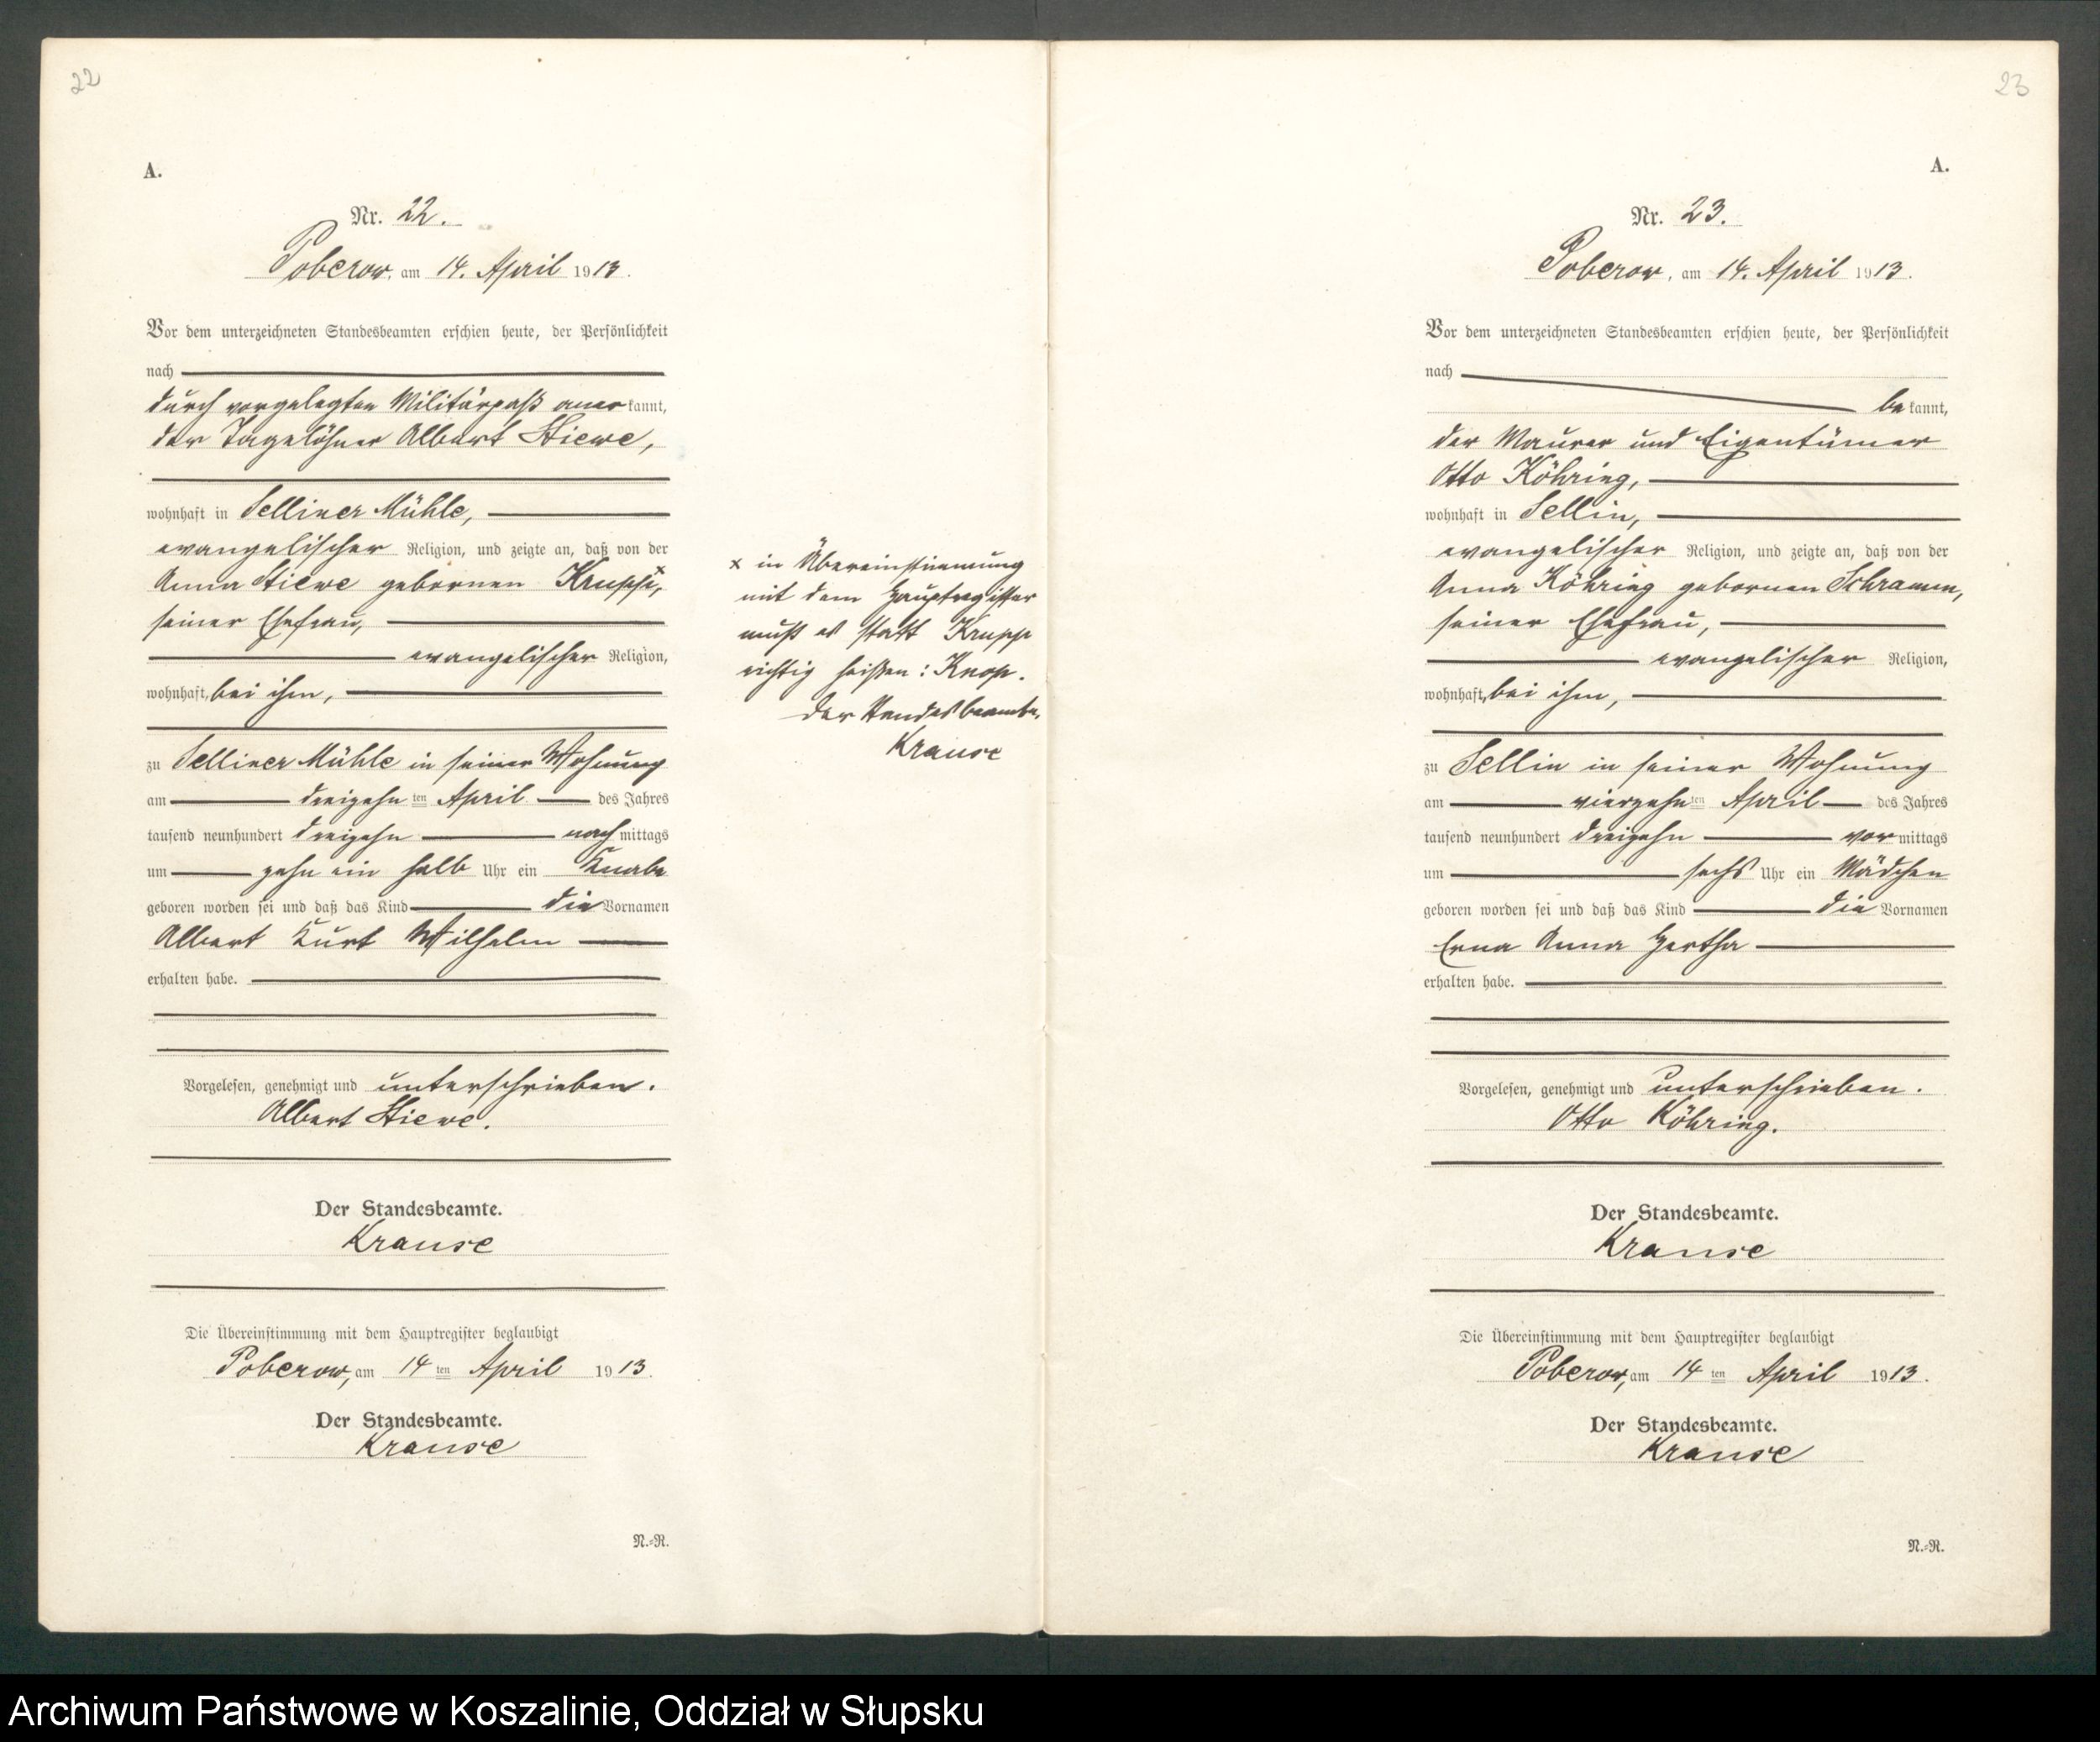 22
A.
Nr. 22.
Poberow, am 14. April 1913.
Vor dem unterzeichneten Standesbeamten erschien heute, der Persönlichkeit
nach
durch vorgelegten Militärpaß anerkannt,
der Tagelöhner Albert Stiewe,
wohnhaft in Selliner Mühle,
evangelischer Religion, und zeigte an, daß von der
Anna Stiewe gebornen Krupp x,
seiner Ehefrau,
evangelischer Religion,
wohnhaft, bei ihm,
zu Selliner Mühle in seiner Wohnung
am dreizehn ten April des Jahres
tausend neunhundert dreizehn nachmittags
um zehn ein halb Uhr ein Knabe
geboren worden sei und daß das Kind die Vornamen
Albert Kurt Wilhelm
erhalten habe.
Vorgelesen, genehmigt und unterschrieben.
Albert Stiewe.
Der Standesbeamte.
Krause
Die Übereinstimmung mit dem Hauptregister beglaubigt
Poberow, am 14 ten April 1913.
Der Standesbeamte.
Krause
N.-R.
x in Übereinstimmung
mit dem Hauptregister
muß es statt Krupp
richtig heißen: Knop.
Der Standesbeamte.
Krause
23
A.
Nr. 23.
Poberow, am 14. April 1913.
Vor dem unterzeichneten Standesbeamten erschien heute, der Persönlichkeit
nach
bekannt,
der Maurer und Eigentümer
Otto Köhring,
wohnhaft in Sellin,
evangelischer Religion, und zeigte an, daß von der
Anna Köhring gebornen Schramm,
seiner Ehefrau,
evangelischer Religion,
wohnhaft, bei ihm,
zu Sellin in seiner Wohnung
am vierzehn ten April des Jahres
tausend neunhundert dreizehn vormittags
um sechs Uhr ein Mädchen
geboren worden sei und daß das Kind die Vornamen
Erna Anna Hertha
erhalten habe.
Vorgelesen, genehmigt und unterschrieben.
Otto Köhring.
Der Standesbeamte.
Krause
Die Übereinstimmung mit dem Hauptregister beglaubigt
Poberow, am 14 ten April 1913.
Der Standesbeamte.
Krause
N.-R.
Archiwum Państwowe w Koszalinie, Oddział w Słupsku